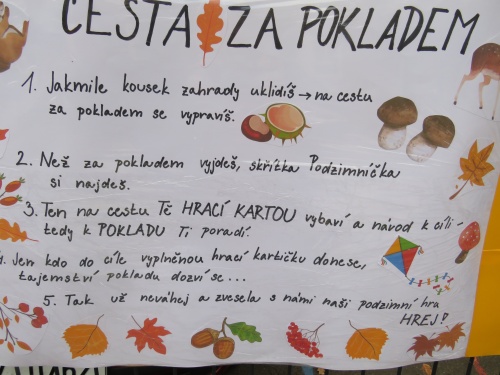 CESTA ZA POKLADEM
1. Jakmile kousek zahrady uklidíš → na cestu
za pokladem se vypravíš.
2. Než za pokladem vyjdeš, skřítka Podzimníčka
si najdeš.
3. Ten na cestu Tě HRACÍ KARTOU vybaví a návod k cíli -
tedy k POKLADU Ti poradí.
4. Jen kdo do cíle vyplněnou hrací kartičku donese,
tajemství pokladu dozví se...
5. Tak už neváhej a zvesela s námi naši podzimní hru
HREJ!